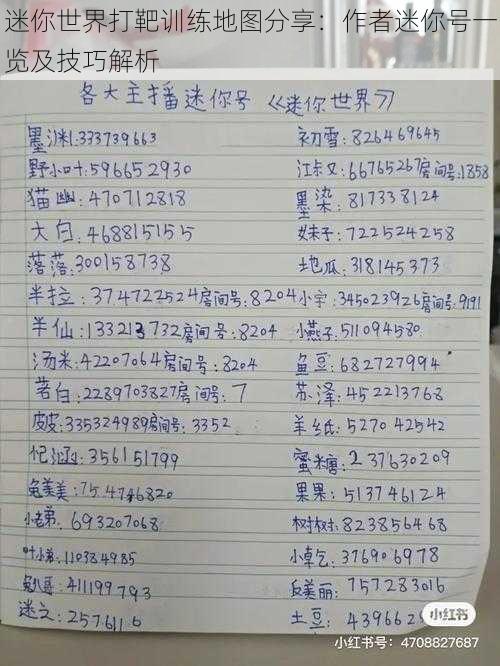 迷你世界打靶训练地图分享：作者迷你号一
览及技巧解析
各大主播迷你号《迷你世界》
墨淋:333739663 初雪:826469645
野小叶:596652930 江叔又:6676526房间号:1858
猫幽:470712818 墨染:817338124
大白:468815155 妹子:722524258
落落:300158738 地瓜:318145373
半拉:374722524房间号:8204 小宇:345023926房间号:9191
羊仙:133213732房间号:8204 小燕子:511094580
汤米:42207064房间号:8204 鱼豆:682727994
若白:2289703827房间号:7 苏泽:452213768
皮皮:335324989房间号:3352 羊纸:527042542
忆涵:356151799 蜜糖:237630209
兔美美:754746820 果果:513746124
小老弟:693207068 树树:823856468
叶小弟:110384985 小卓乞:376906978
兔八哥:411199793 皮美丽:757283016
迷之:257611 土豆:43966
小红书
小红书号：4708827687